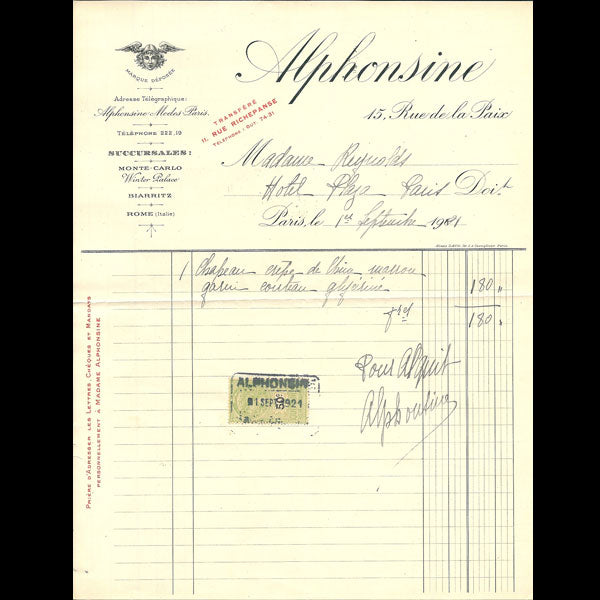 Alphonsine
15, Rue de la Paix
MARQUE DÉPOSÉE
Adresse Télégraphique:
Alphonsine-Modes Paris.
TÉLÉPHONE 222.19
SUCCURSALES:
MONTE-CARLO
Winter Palace
BIARRITZ
ROME (Italie)
TRANSFÉRÉ
11, RUE RICHEPANSE
TELEPHONE: GUT. 74-31
Madame Reynolds
Hotel Plaza Paris Doit
Paris, le 1er Septembre 1921
1 Chapeau crêpe de Chine marron
garni couteau glycériné 180 "
frs 180 "
Pour Acquit
Alphonsine
ALPHONSINE
1 SEPT 1921
50c
PRIÈRE D'ADRESSER LES LETTRES, CHÈQUES ET MANDATS
PERSONNELLEMENT À MADAME ALPHONSINE